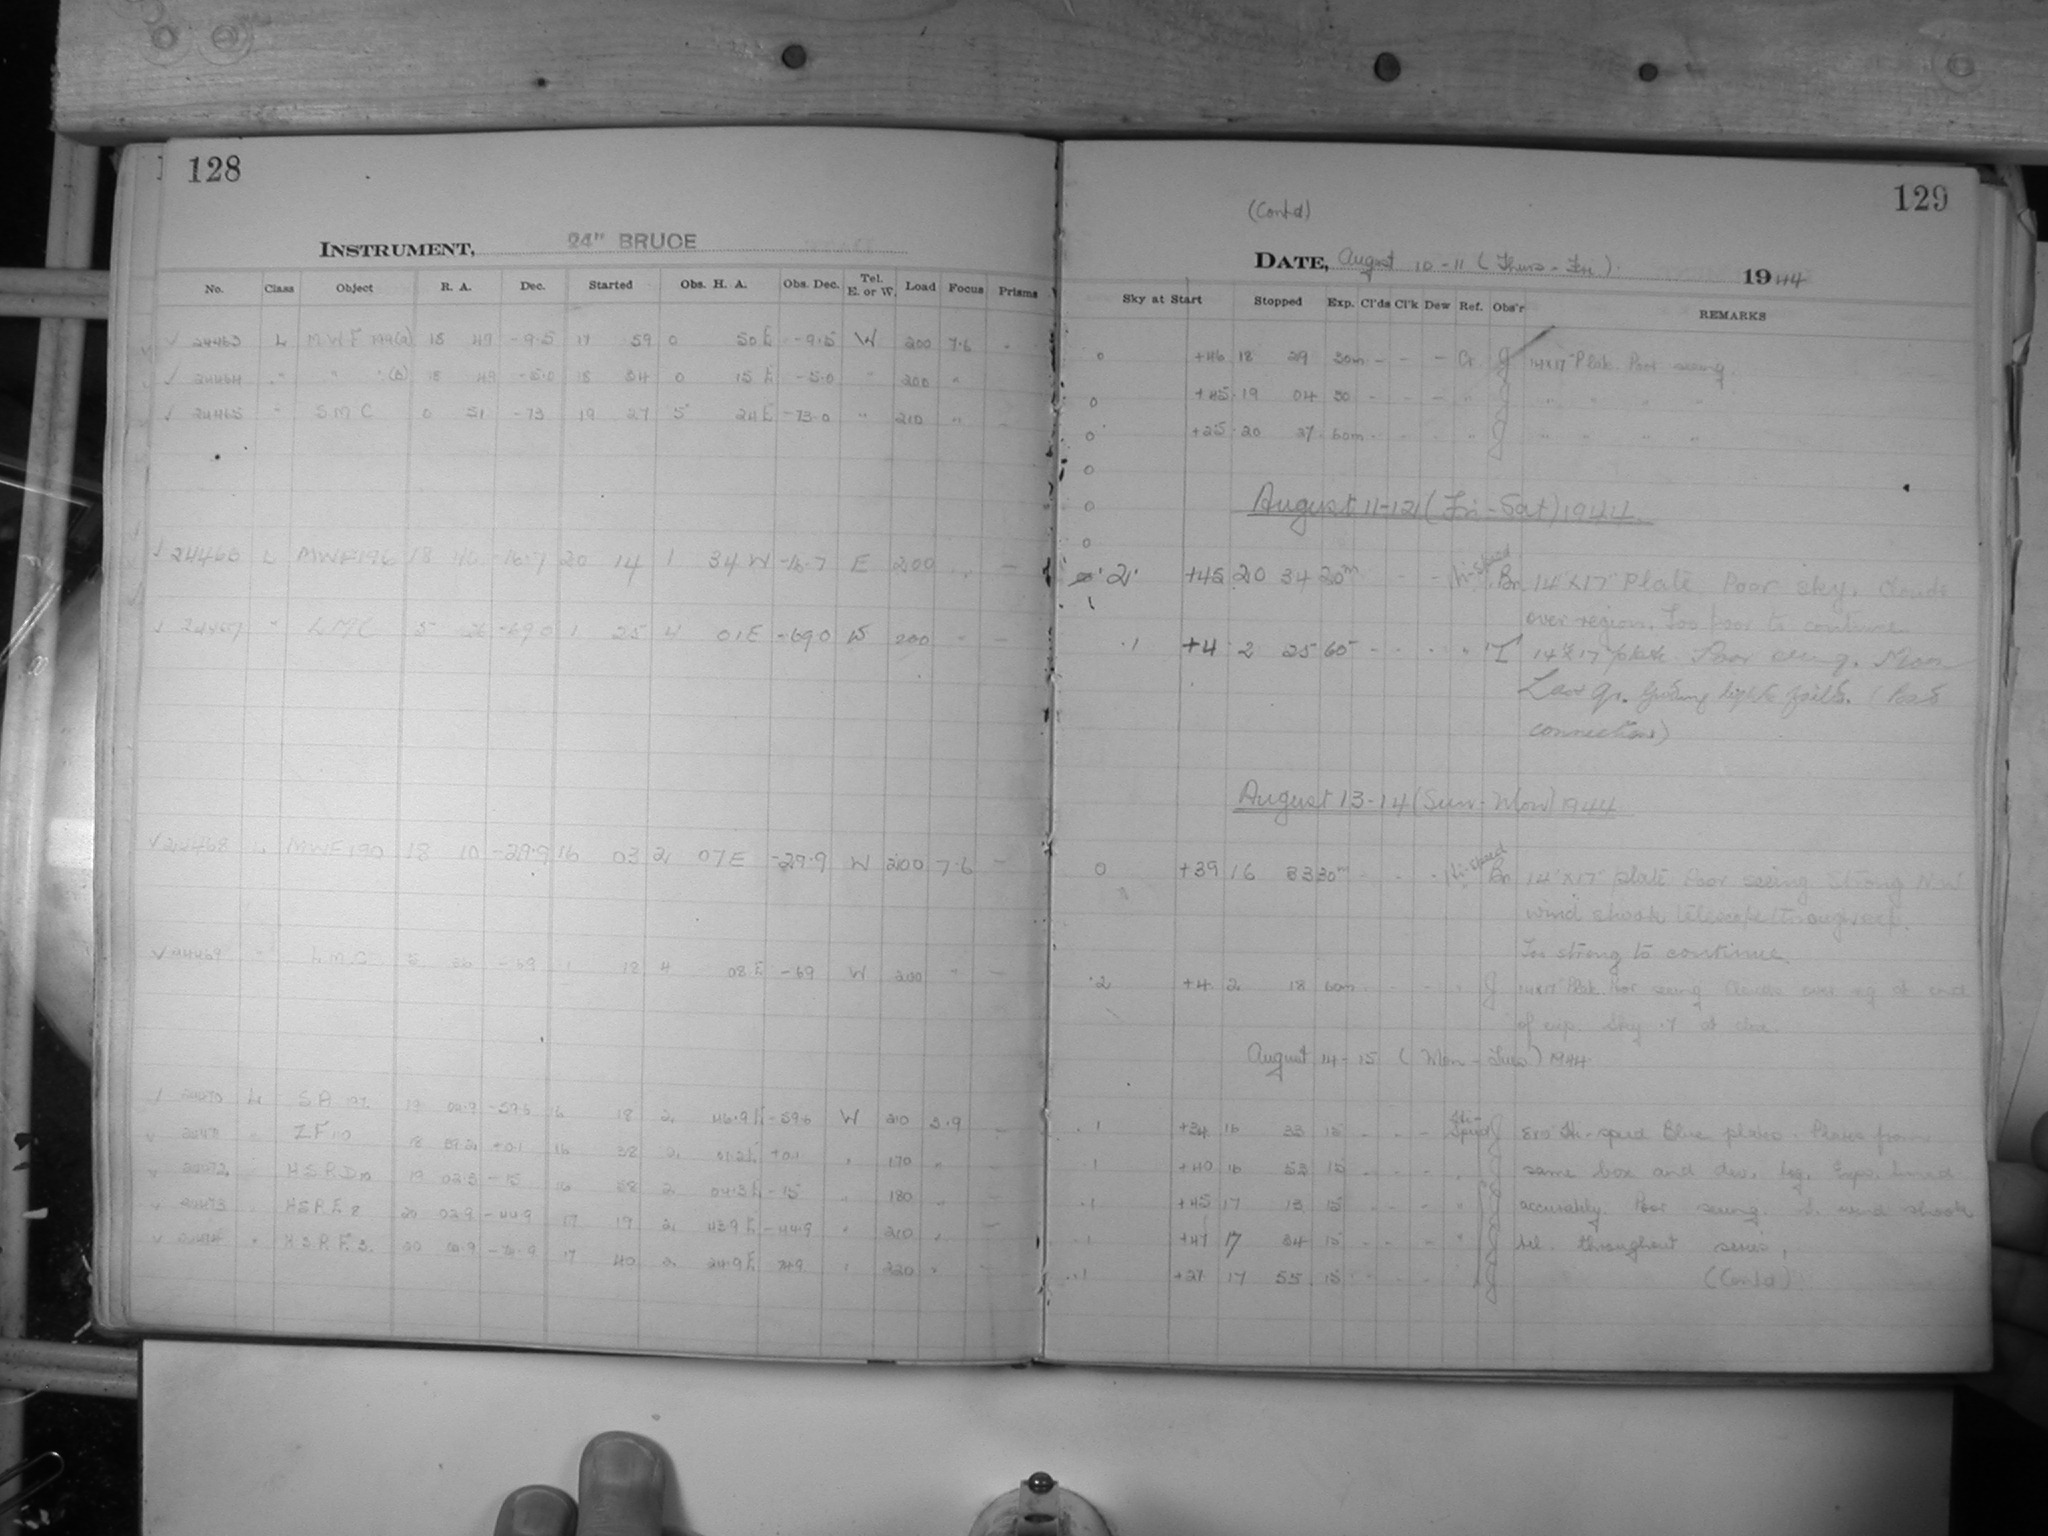 128
INSTRUMENT, 24" BRUCE
No. Class Object R. A. Dec. Started Obs. H. A. Obs. Dec. Tel. E. or W. Load Focus Prisms
√ 24463 L MWF 199(a) 18 49 -9.5 17 59 0 50 E -9.5 W 200 7.6
√ 24464 " " (b) 18 49 -5.0 18 34 0 15 E -5.0 " 200 "
√ 24465 " SMC 0 51 -73 19 27 5 24 E -73.0 " 210 "
√ 24466 L MWF196 18 46 -16.7 20 14 1 34 W -16.7 E 200 " -
√ 24467 " LMC 5 26 -69.0 1 25 4 01 E -69.0 W 200 " -
√ 24468 L MWF190 18 10 -29.9 16 03 2 07 E -29.9 W 200 7.6 -
√ 24469 " LMC 5 26 -69 1 18 4 08 E -69 W 200 " -
√ 24470 L S.A. 16 18 2 46.9 E -59.6 W 210 3.9
√ 24471 " 18 +0.1 16 38 2 +0.1 " 170 "
√ 24472 " H.S.P. D10 19 02.3 -15 16 58 2 04.3 E -15 " 180 "
√ 24473 " H.S.P. E8 20 02.9 -44.9 17 19 2 43.9 E -44.9 " 210 "
√ 24474 " H.S.P. F3 20 17 40 2 24.9 E " 220 "
129
(Contd)
DATE, August 10-11 (Thurs-Fri) 1944
Sky at Start Stopped Exp. Cl'ds Cl'k Dew Ref. Obs'r REMARKS
0 +46 18 29 30m - - - Cr. J 14x17 Plate. Poor seeing.
0 +45 19 04 30 - - - " " " " "
0 +25 20 27 60m - - - " " " " "
0
0
0
August 11-12 (Fri-Sat) 1944
.2 +45 20 34 20m - - - Hi-speed Bn 14"x17" Plate. Poor sky. Clouds
over region. Too poor to continue.
.1 +4 2 25 60 - - - " 14"x17" plate Poor seeing. Moon
Last Qr. Guiding light fails. (Bad
connections)
August 13-14 (Sun-Mon) 1944
0 +39 16 33 30m - - - Hi-speed Bn 14"x17" plate Poor seeing Strong N.W.
wind shook telescope throughout.
Too strong to continue.
.2 +4 2 18 60m - - - " J 14x17 Plate. Poor seeing Clouds over reg at end
of exp. Sky .7 at
August 14-15 (Mon-Tues) 1944
.1 +34 16 33 15 - - - Hi-Speed J 8x10 Hi-speed Blue plates. Plates from
.1 +40 16 53 15 - - - " J same box and dev. tog. Exps. timed
.1 +45 17 13 15 - - - " accurately. Poor seeing. wind shook
.1 +47 17 34 15 - - - " tel. throughout series.
.1 +27 17 55 15 - - - (Contd)